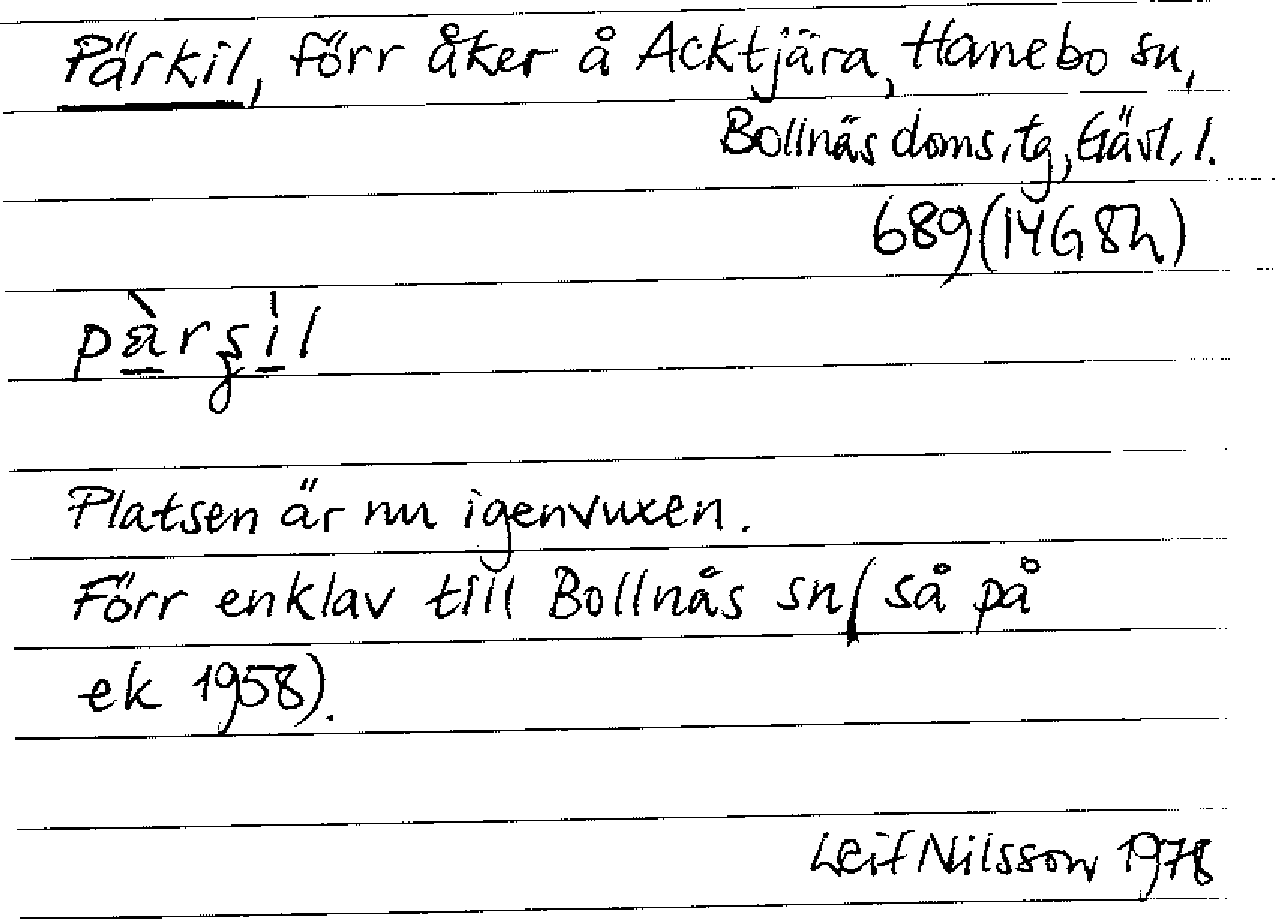 Pärkil, förr åker å Acktjära, Hanebo sn,
Bollnäs doms.tg, Gävl. l.
689 (14G 8h)
Platsen är nu igenvuxen.
Förr enklav till Bollnäs sn (så på
ek 1958).
Leif Nilsson 1978